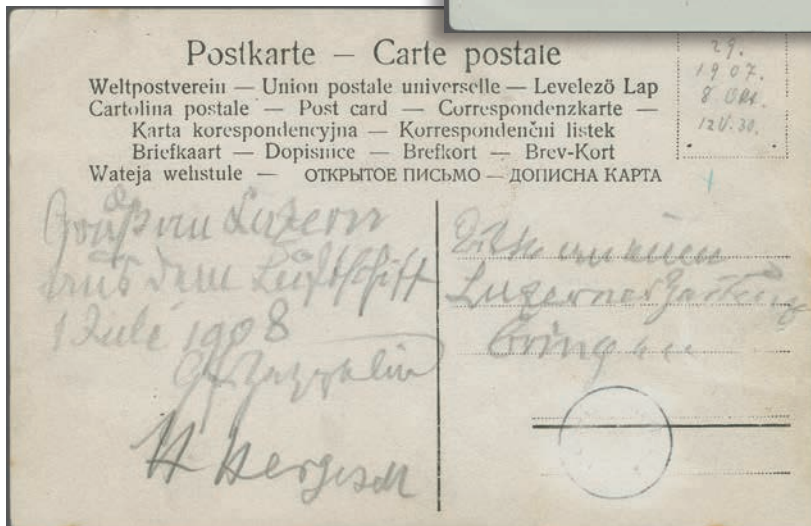 Postkarte — Carte postale
Weltpostverein — Union postale universelle — Levelező Lap
Cartolina postale — Post card — Correspondenzkarte —
Karta korespondencyjna — Korrespondenčni listek
Briefkaart — Dopisnice — Brefkort — Brev-Kort
Wateja wehstule — ОТКРЫТОЕ ПИСЬМО — ДОПИСНА КАРТА
29.
1907.
8
12 V. 30.
Gruß an Luzern
aus dem Luftschiff
1 Juli 1908
Gf Zeppelin
H Hergesell
Bitte an einen
Luzerner Zeitung
bringen